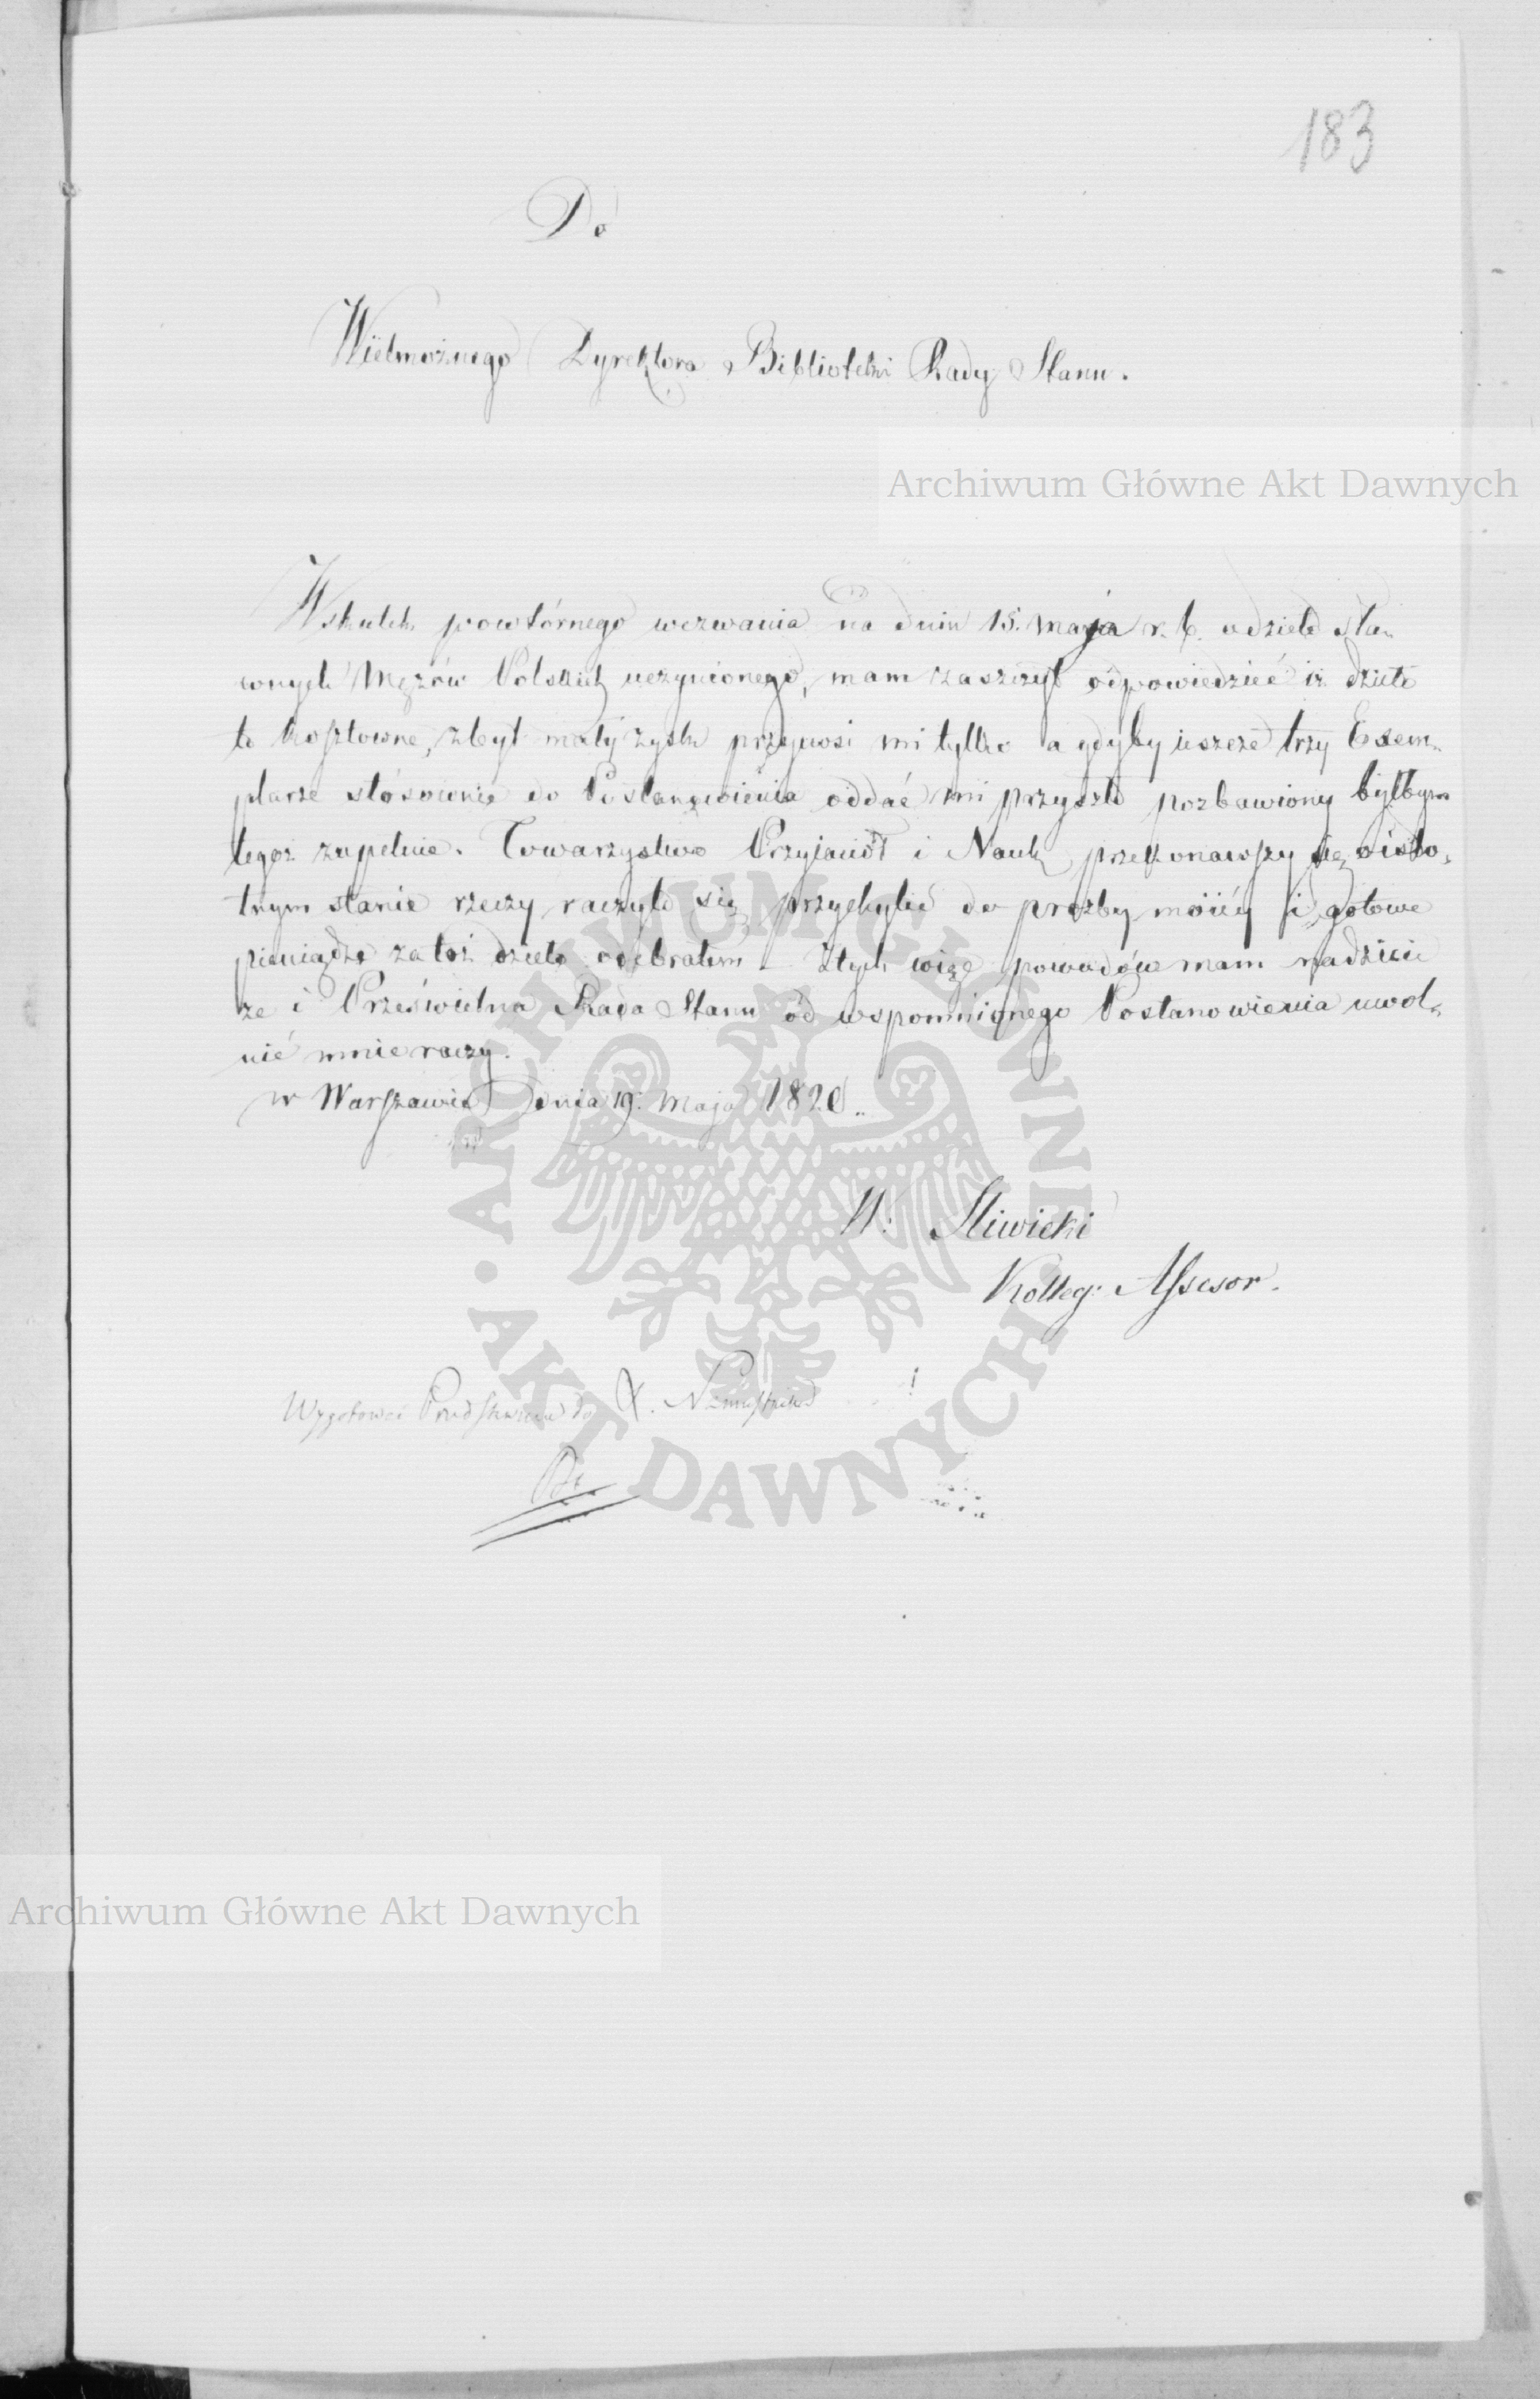 183
Do
Wielmożnego Dyrektora Biblioteki Rady Stanu.
Archiwum Główne Akt Dawnych
Wskutek powtórnego wezwania na dniu 15. maja r. b. o dzieło sła„
wnych Mężów Polskich uczynionego, mam zaszczyt odpowiedzieć iż dzieło
to kosztowne, zbyt mały zysk przynosi mi tylko a gdyby ieszcze trzy Exem„
plarze stósownie do Postanowienia oddać mi przyszło pozbawiony byłbym
tegoż zupełnie. Towarzystwo Przyiaciół i Nauk, przekonawszy się o isto„
tnym stanie rzeczy, raczyło się przychylić do prożby moiéy i gotowe
pieniądze za toż dzieło odebrałem – Ztych więc powodów mam nadzieie
że i Prześwietna Rada Stanu od wspomnionego Postanowienia uwol„
nić mnie raczy.
w Warszawie Dnia 19. Maja 1820.
W. Sliwicki
Kolleg: Assesor.
Wygotować Przedstawienie do X. Namiestnika
ARCHIWUM GŁÓWNE • AKT DAWNYCH •
Archiwum Główne Akt Dawnych